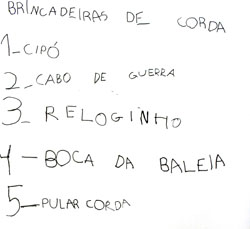 BRINCADEIRAS DE CORDA
1-CIPÓ
2-CABO DE GUERRA
3-RELOGINHO
4-BOCA DA BALEIA
5-PULAR CORDA